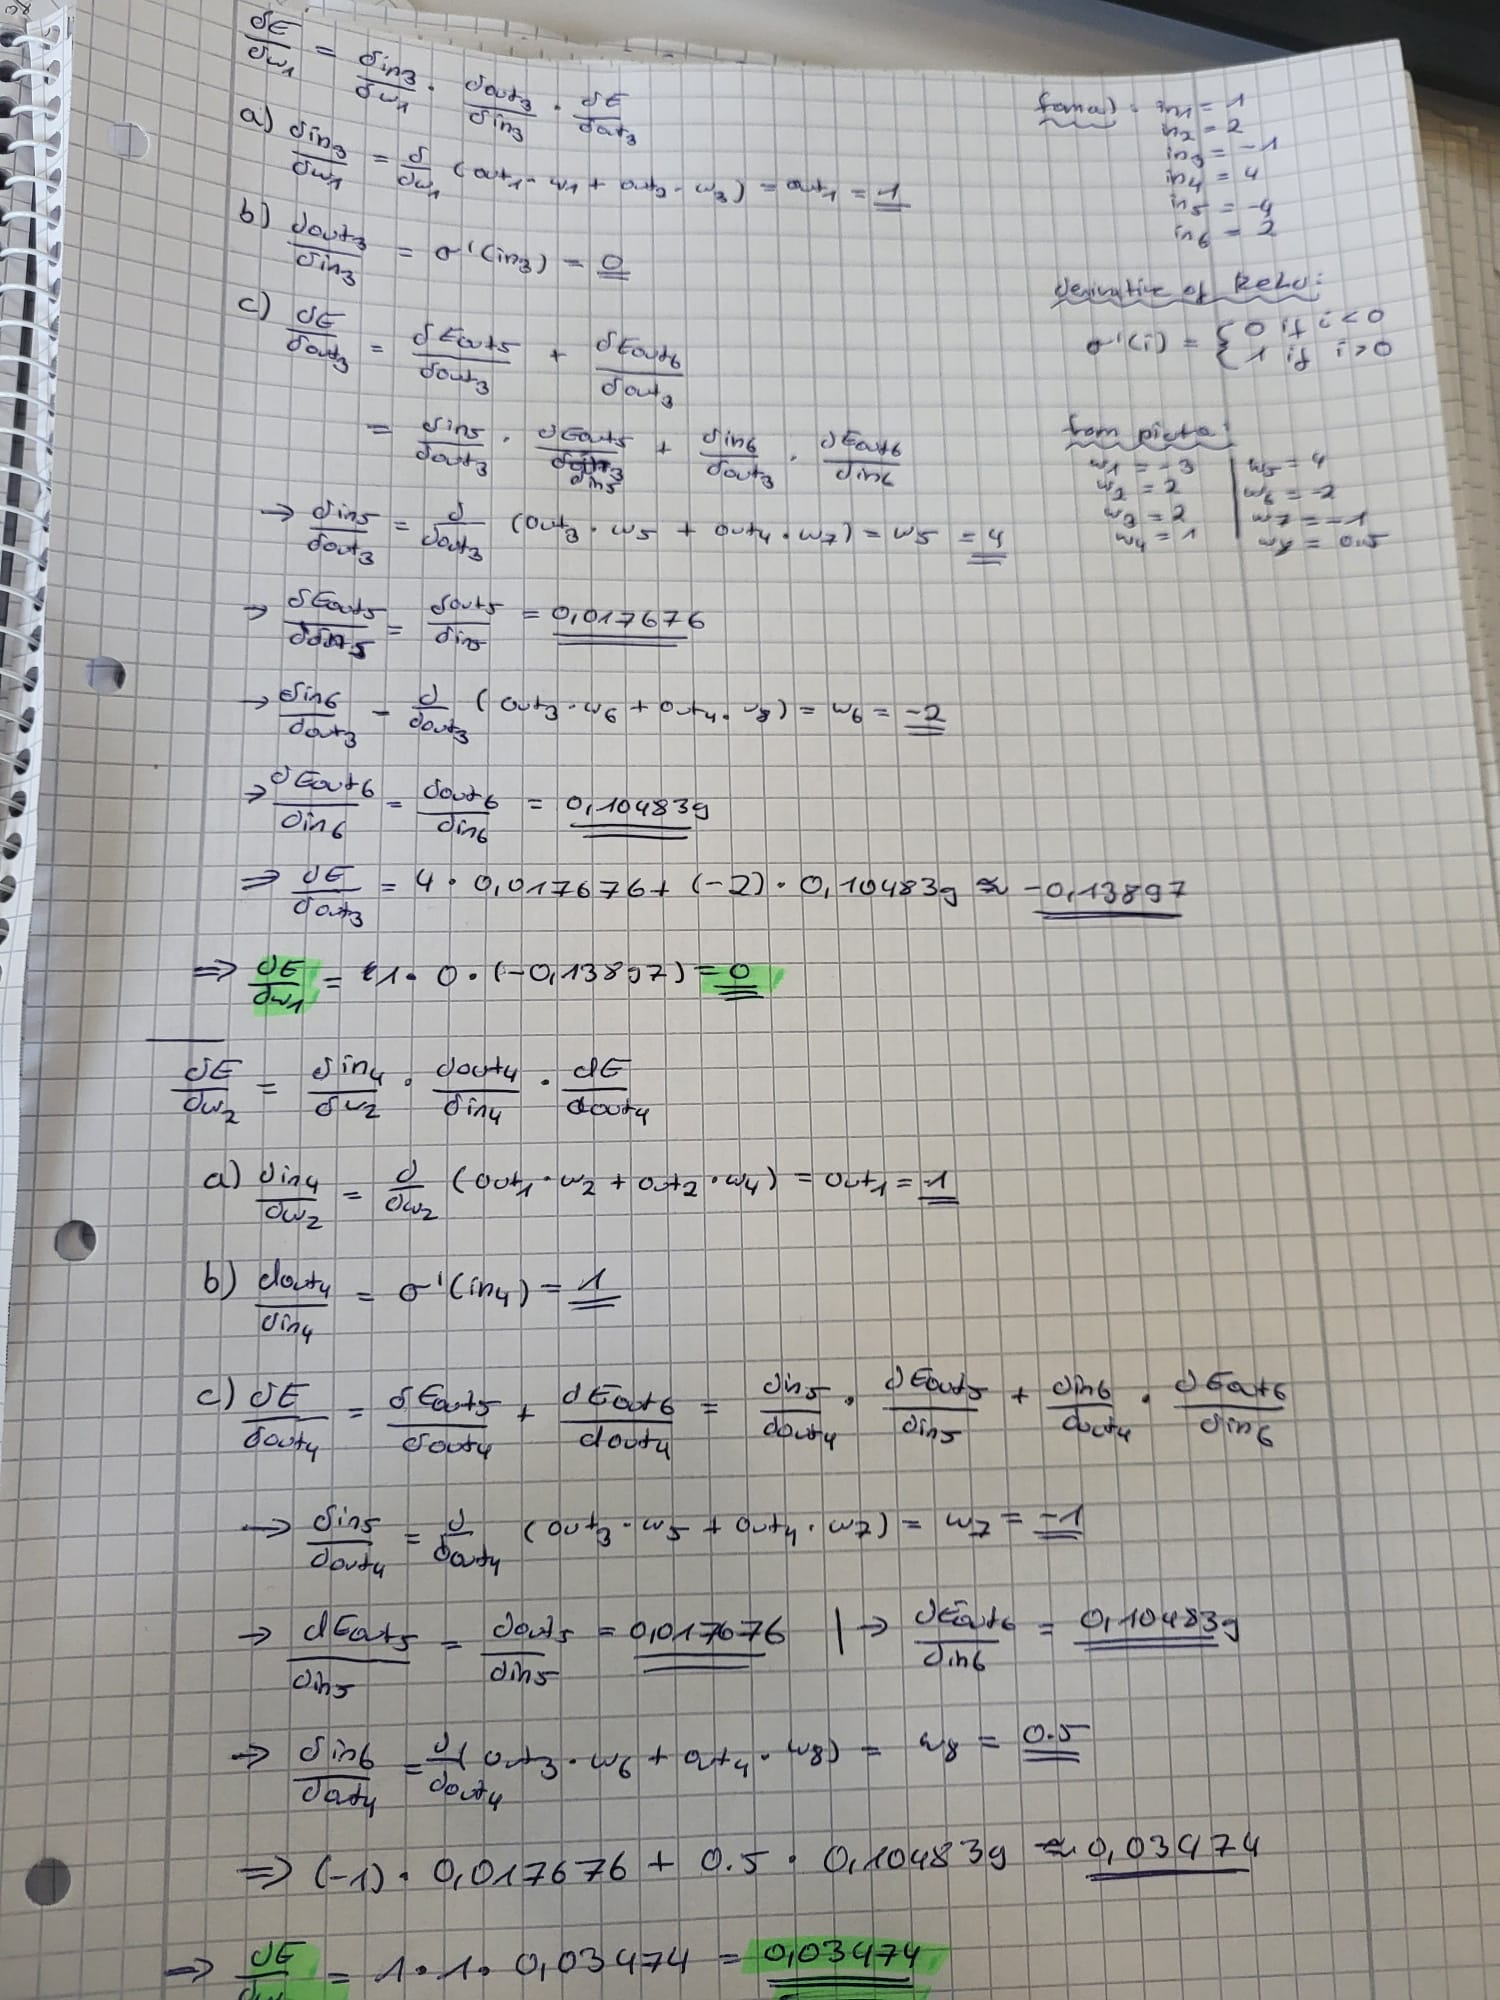 δE/δw1 = δin3/δw1 · δout3/δin3 · δE/δout3
a) δin3/δw1 = δ/δw1 (out1 · w1 + out2 · w3) = out1 = 1
b) δout3/δin3 = σ'(in3) = 0
c) δE/δout3 = δEout5/δout3 + δEout6/δout3
= δin5/δout3 · δEout5/δin5 + δin6/δout3 · δEout6/δin6
→ δin5/δout3 = δ/δout3 (out3 · w5 + out4 · w7) = w5 = 4
→ δEout5/δin5 = δout5/δin5 = 0,017676
→ δin6/δout3 = δ/δout3 (out3 · w6 + out4 · w8) = w6 = -2
→ δEout6/δin6 = δout6/δin6 = 0,104839
⇒ δE/δout3 = 4 · 0,017676 + (-2) · 0,104839 ≈ -0,13897
⇒ δE/δw1 = 1 · 0 · (-0,13897) = 0
in1 = 1
in2 = 2
in3 = -1
in4 = 4
in5 = -4
in6 = 2
derivative of ReLU:
σ'(i) = { 0 if i < 0
1 if i > 0
w1 = -3 | w5 = 4
w2 = 2 | w6 = -2
w3 = 2 | w7 = -1
w4 = 1 | w8 = 0.5
δE/δw2 = δin4/δw2 · δout4/δin4 · δE/δout4
a) δin4/δw2 = δ/δw2 (out1 · w2 + out2 · w4) = out1 = 1
b) δout4/δin4 = σ'(in4) = 1
c) δE/δout4 = δEout5/δout4 + δEout6/δout4 = δin5/δout4 · δEout5/δin5 + δin6/δout4 · δEout6/δin6
→ δin5/δout4 = δ/δout4 (out3 · w5 + out4 · w7) = w7 = -1
→ δEout5/δin5 = δout5/δin5 = 0,017676 | → δEout6/δin6 = 0,104839
→ δin6/δout4 = δ/δout4 (out3 · w6 + out4 · w8) = w8 = 0.5
⇒ (-1) · 0,017676 + 0.5 · 0,104839 ≈ 0,03474
⇒ δE/δw2 = 1 · 1 · 0,03474 = 0,03474